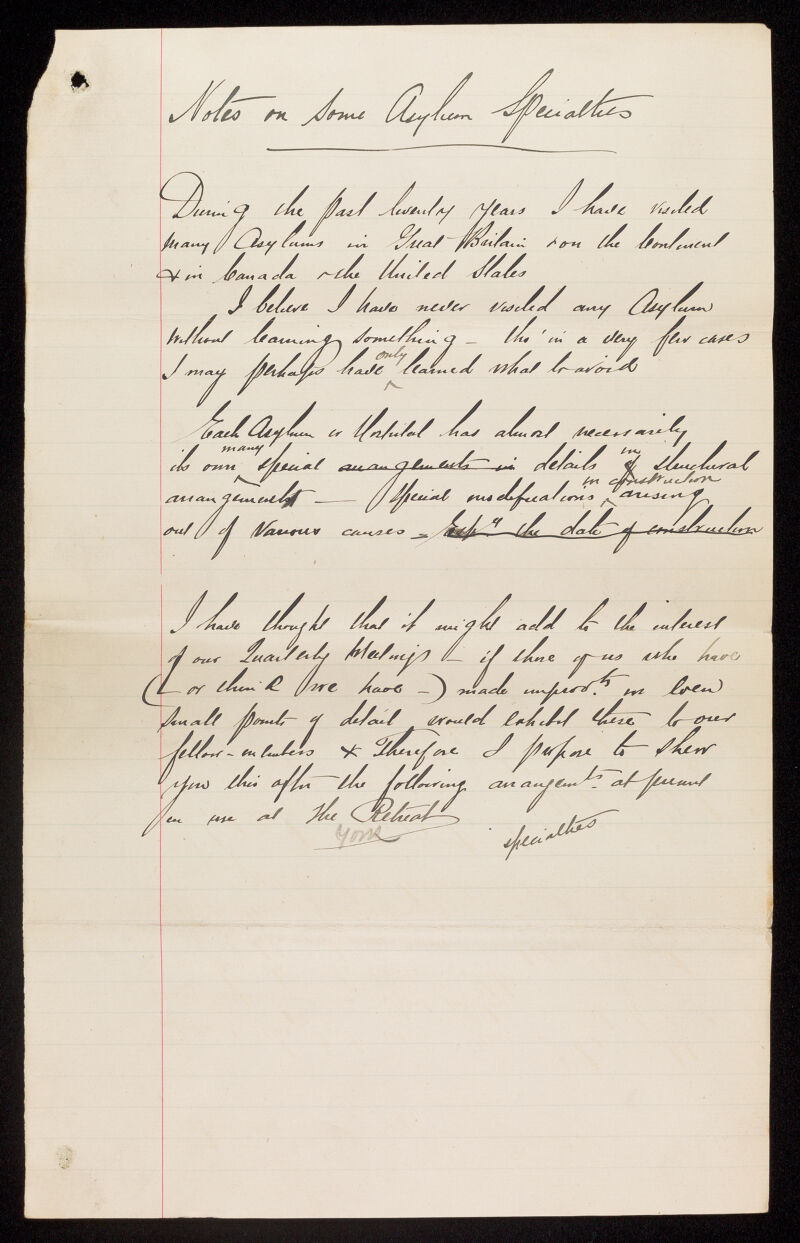 Notes on some Asylum Specialties
During the past twenty years I have visited
many Asylums in Great Britain & on the Continent
& in Canada & the United States
I believe I have never visited any Asylum
without learning something - tho' in a very few cases
only
I may perhaps have learned what to avoid
Each Asylum or Hospital has almost necessarily
many in
its own special arrangements in details of structural
in construction
arrangements — special modifications arising
out of various causes - Espy the date of construction
I have thought that it might add to the interest
of our Quarterly Meetings - if those of us who have
(- or think we have -) made improvts in even
small points of detail would exhibit these to our
fellow-members & Therefore I propose to shew
you this aftn the following arrangemts at present
in use at the Retreat
York
specialties